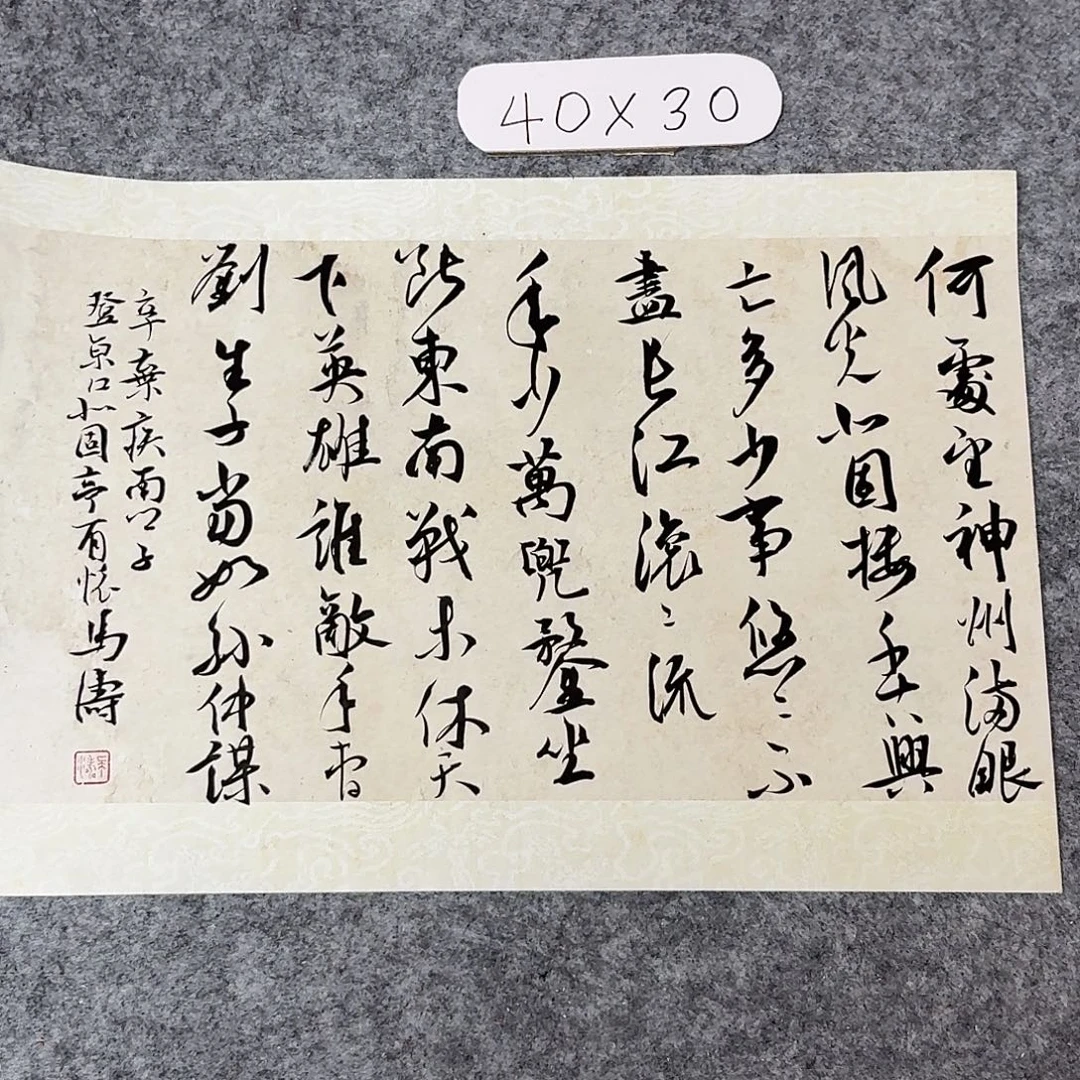 40X30
何處望神州滿眼
風光北固樓千古興
亡多少事悠〻不
盡長江滾〻流
年少萬兜鍪坐
斷東南戰未休天
下英雄誰敵手曹
劉生子當如孫仲謀
辛棄疾南鄉子
登京口北固亭有懷馬濤